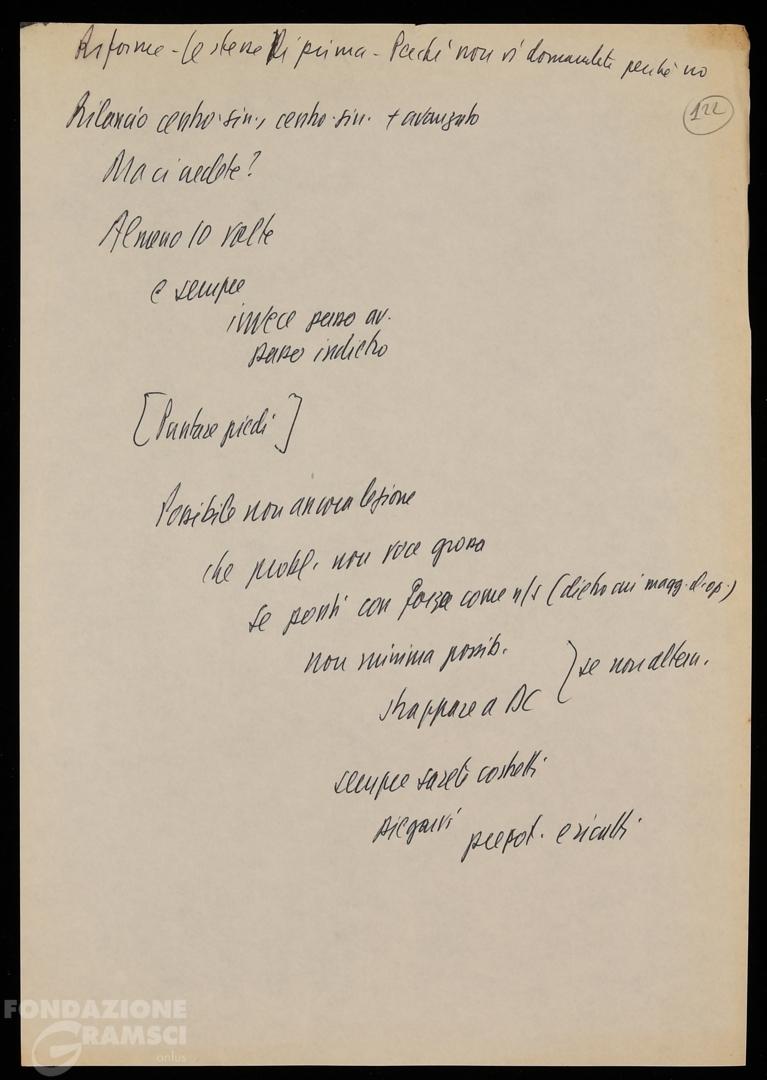 Riforme - Le stesse di prima - Perché non vi domandate perché no
122
Rilancio centro-sin., centro-sin. + avanzato
Ma ci credete?
Almeno 10 volte
e sempre
invece passo av.
passo indietro
[Puntare piedi]
Possibile non ancora lezione
che probl. non voce grossa
se partiti con forza come n/s (dietro cui magg. d. op.)
non minima possib.
strappare a DC } se non altern.
sempre sarete costretti
piegarvi
prepot. e ricatti
FONDAZIONE
GRAMSCI
onlus